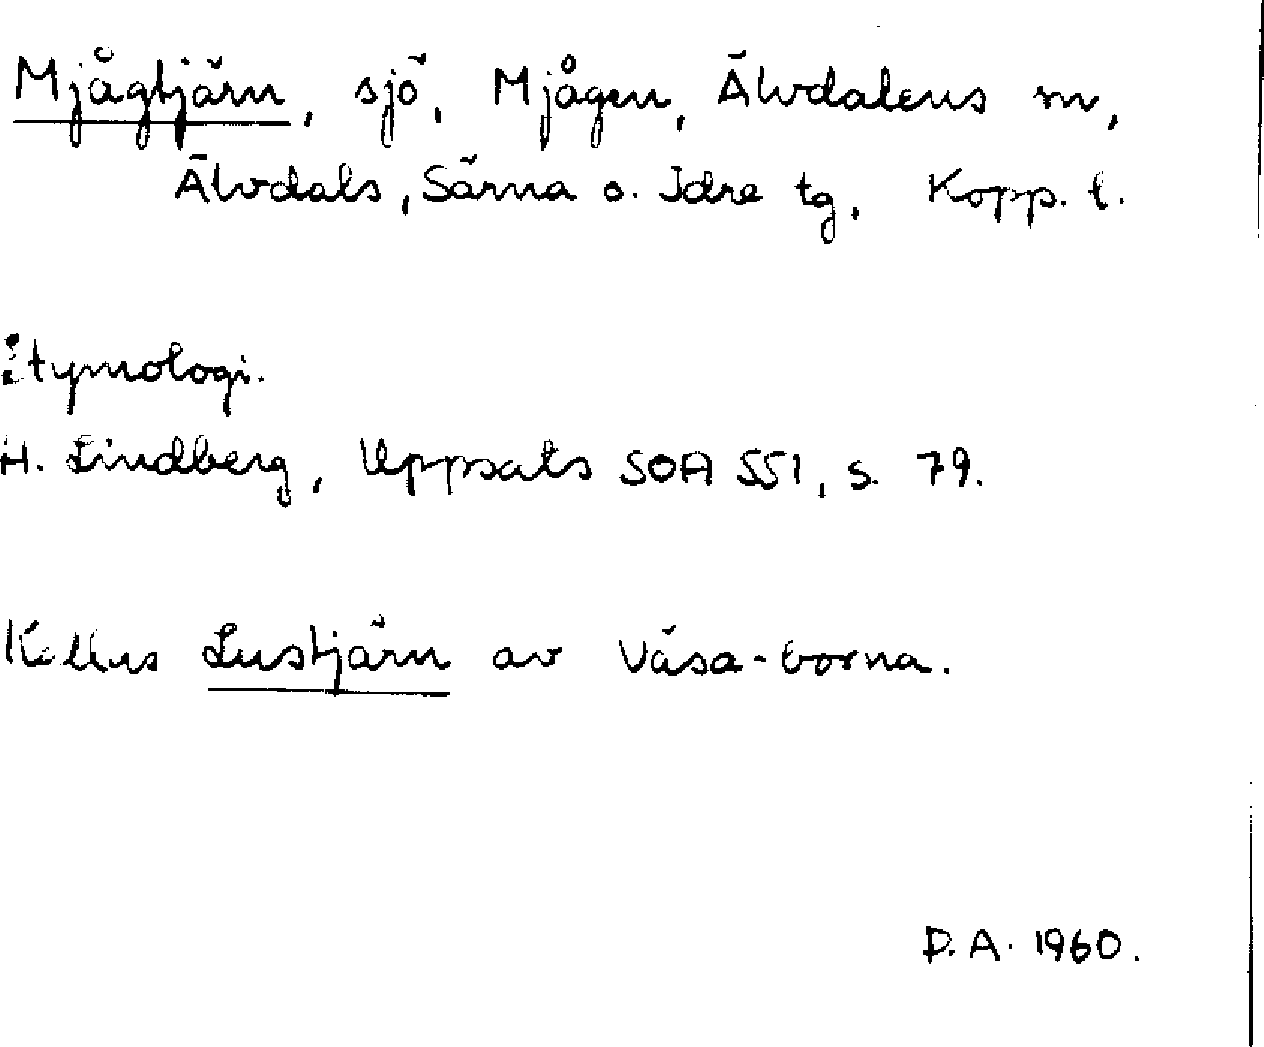 Mjågtjärn, sjö, Mjågen, Älvdalens m,
Älvdals, Särna o. Idre tg, Kopp. l.
Etymologi.
H. Lindberg, Uppsats SOA 551, s. 79.
Kallas Lustjärn av Väsa-borna.
D.A. 1960.